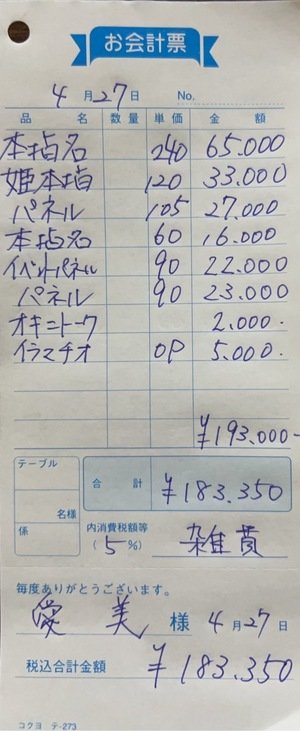 お会計票
4月27日 No.
品名 数量 単価 金額
本指名 240 65.000
姫本指 120 33.000
パネル 105 27.000
本指名 60 16.000
イベントパネル 90 22.000
パネル 90 23.000
オキニトーク 2.000.
イラマチオ OP 5.000.
¥193.000-
テーブル 合計 ¥183.350
名様
係 内消費税額等
(5%) 雑費
毎度ありがとうございます。
愛美 様 4月27日
税込合計金額 ¥183.350
コクヨ テ-273